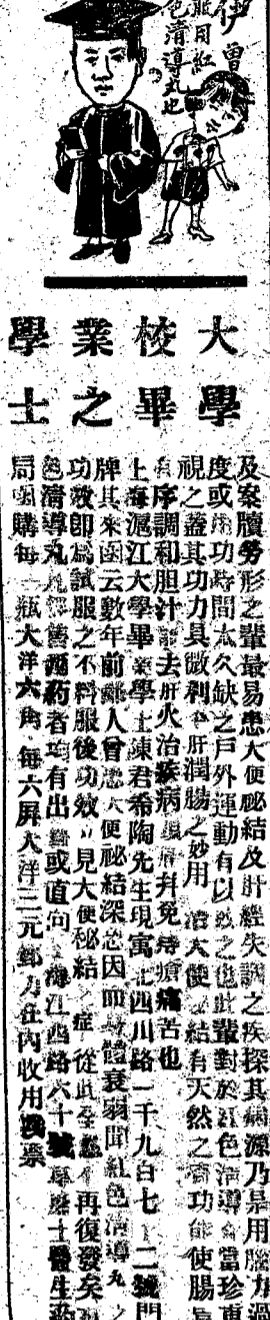 伊曾
服用紅
色清導丸也
大學
校畢
業之
學士
及案牘勞形之輩最易患大便祕結及肝經失調之疾探其病源乃是用腦力過
度或用功時間太久缺之戶外運動有以致之也此輩對於紅色清導丸當珍重
視之蓋其功力具微利平肝潤腸之妙用 大便結有天然之奇功能使腸
有序調和胆汁 去肝火治疾病 并免痔瘡痛苦也
上海滬江大學畢業學士陳君希陶先生現寓北四川路一千九百七十二號門
牌其來函云數年前鄙人曾患大便祕結深 因而身體衰弱聞紅色清導丸之
功效卽爲試服之不料服後功效立見大便秘結之症從此全愈不再復發矣
色清導丸凡經售西藥者均有出售或直向上海江西路六十號韋廉士醫生藥
局函購每一瓶大洋六角每六瓶大洋三元郵力在內收用郵票